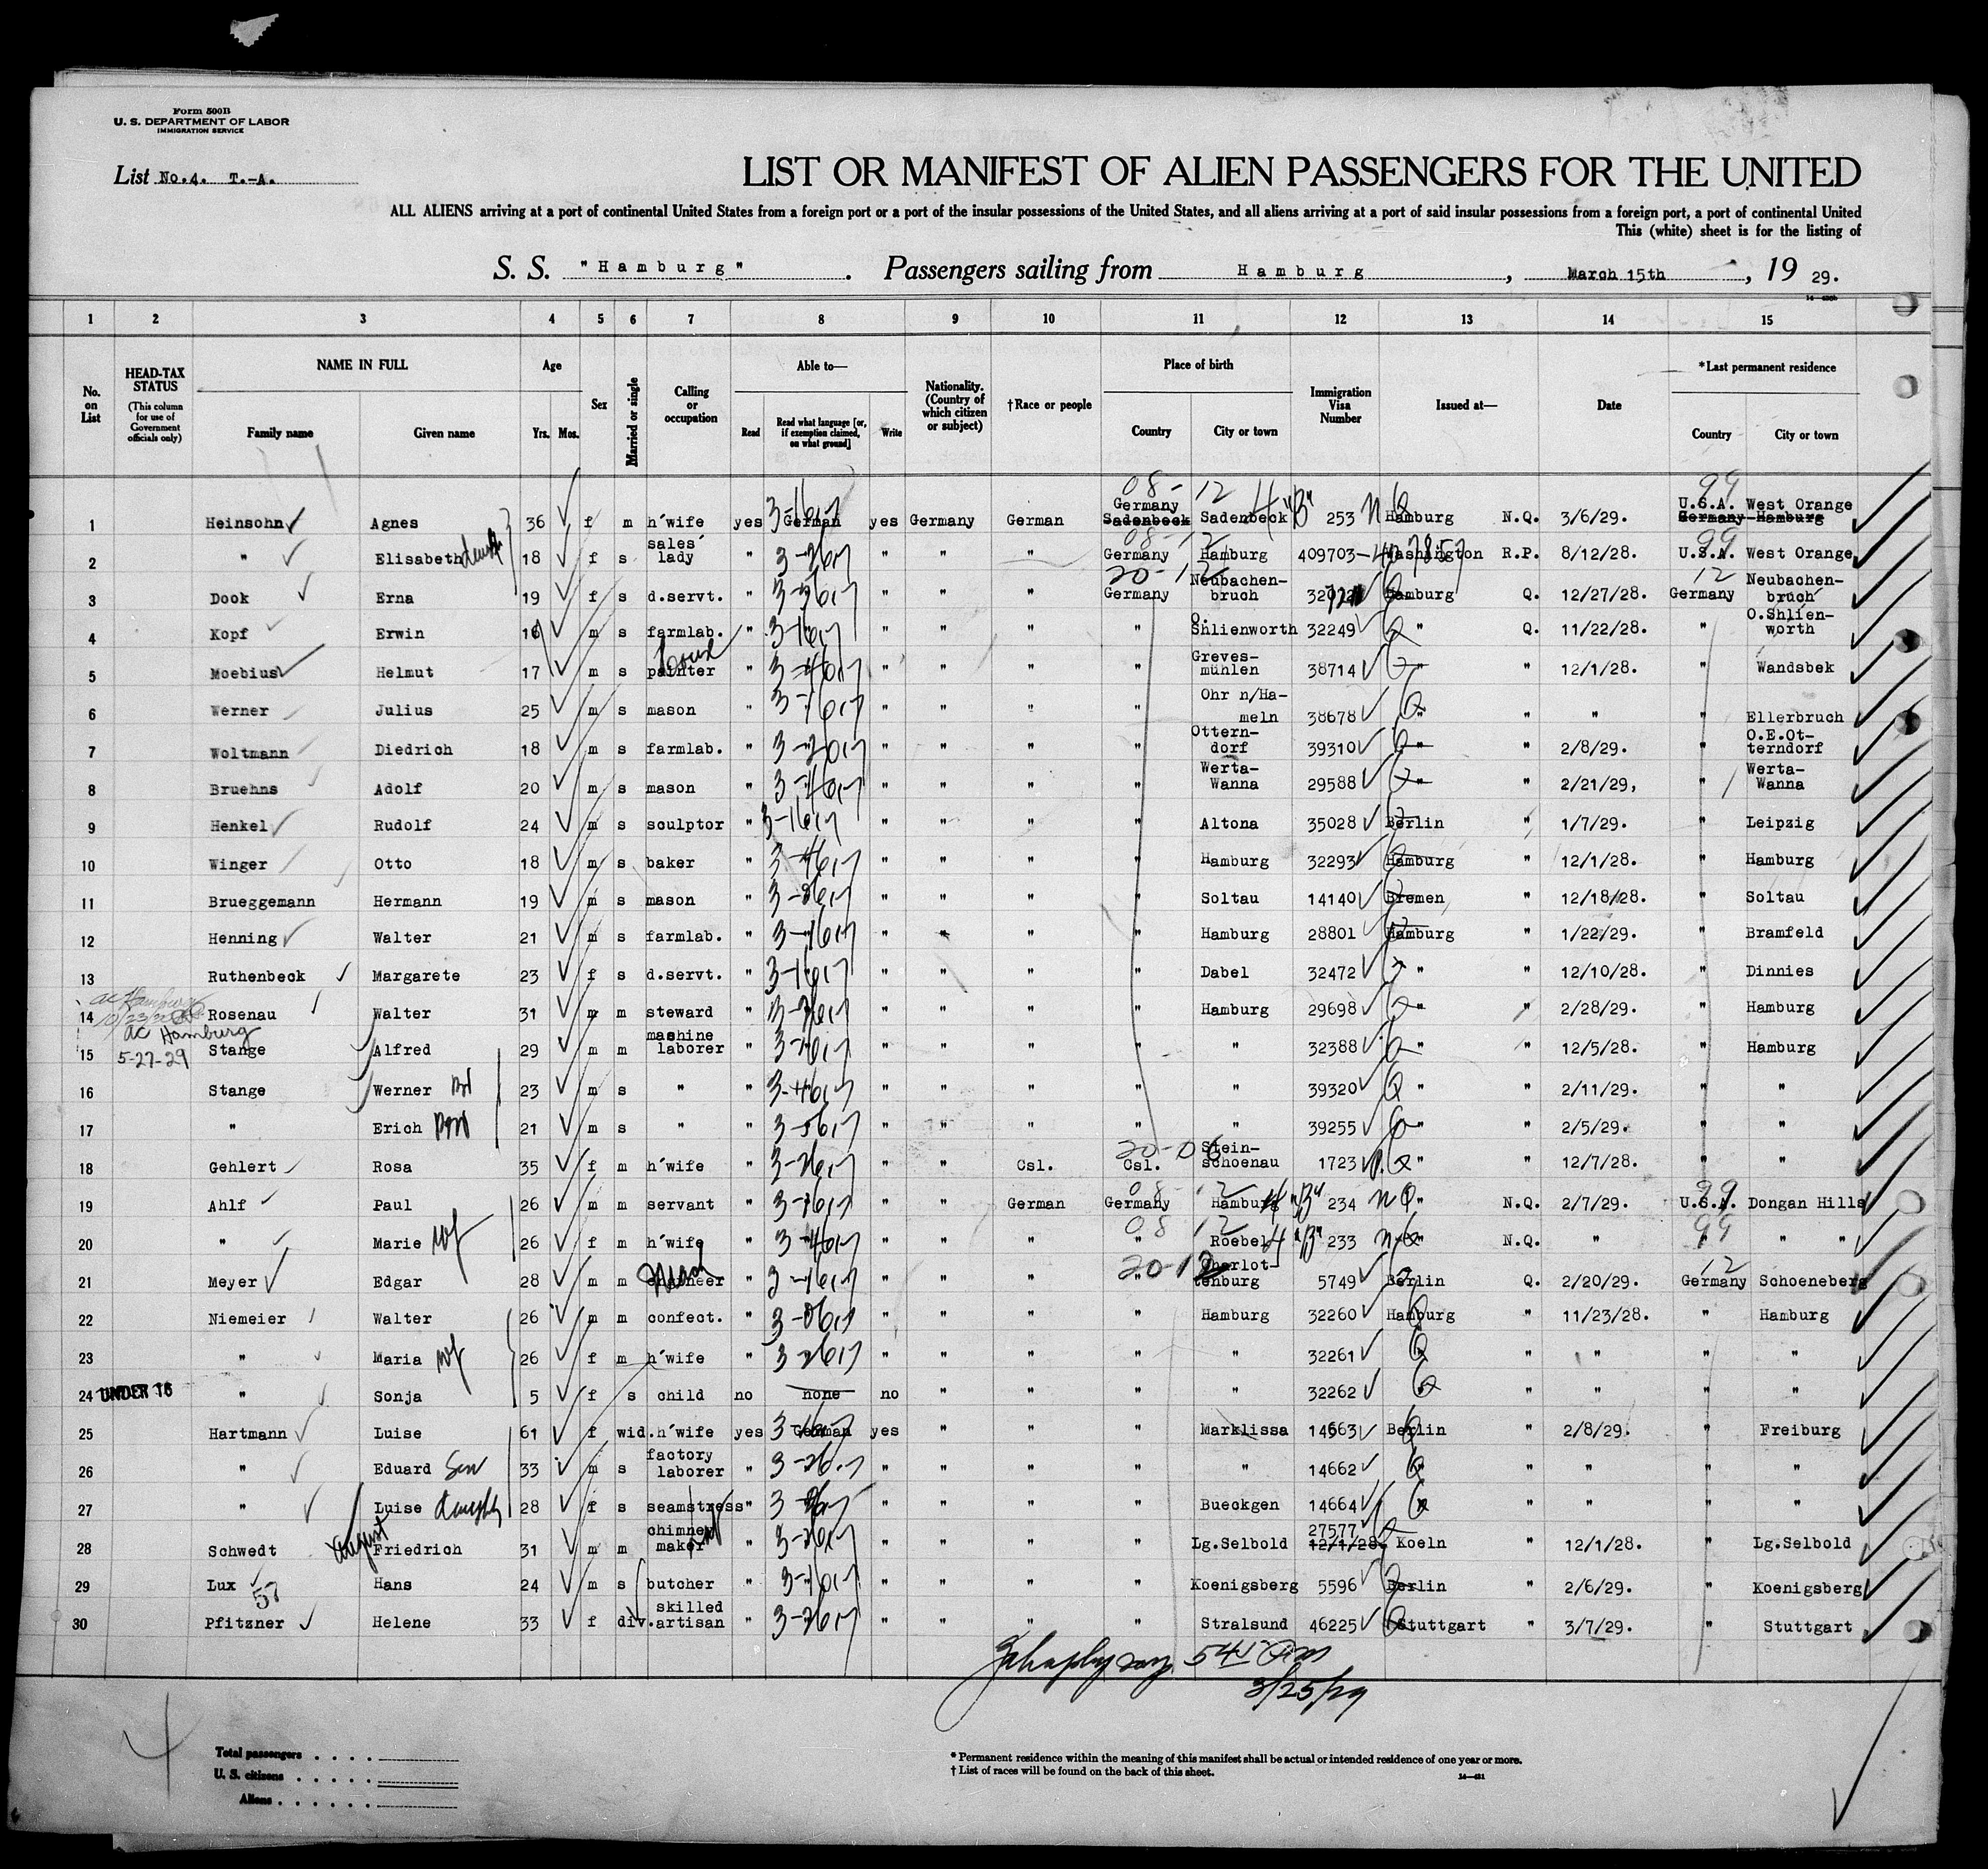 Form 500B
U. S. DEPARTMENT OF LABOR
IMMIGRATION SERVICE
List No.4. T.-A.
LIST OR MANIFEST OF ALIEN PASSENGERS FOR THE UNITED
ALL ALIENS arriving at a port of continental United States from a foreign port or a port of the insular possessions of the United States, and all aliens arriving at a port of said insular possessions from a foreign port, a port of continental United
This (white) sheet is for the listing of
S. S. "Hamburg". Passengers sailing from Hamburg, March 15th, 19 29.
1 2 3 4 5 6 7 8 9 10 11 12 13 14 15
No. on List HEAD-TAX STATUS (This column for use of Government officials only) NAME IN FULL Family name Given name Age Yrs. Mos. Sex Married or single Calling or occupation Able to— Read Read what language [or, if exemption claimed, on what ground] Write Nationality. (Country of which citizen or subject) †Race or people Place of birth Country City or town Immigration Visa Number Issued at— Date *Last permanent residence Country City or town
1 Heinsohn Agnes 36 f m h'wife yes German yes Germany German Germany Sadenbeck Sadenbeck 4 "B" 253 Hamburg N.Q. 3/6/29. U.S.A. West Orange Germany Hamburg
2 " Elisabeth 18 f s sales' lady " " " " Germany Hamburg 409703 Washington R.P. 8/12/28. U.S.A. West Orange
3 Dook Erna 19 f s d.servt. " " " " Germany Neubachen-bruch Hamburg Q. 12/27/28. Germany Neubachen-bruch
4 Kopf Erwin m s farmlab. " " " " " O. Shlienworth 32249 " Q. 11/22/28. " O.Shlien-worth
5 Moebius Helmut 17 m s painter " " " " " Greves-mühlen 38714 " " 12/1/28. " Wandsbek
6 Werner Julius 25 m s mason " " " " " Ohr n/Ha-meln 38678 " " " " Ellerbruch
7 Woltmann Diedrich 18 m s farmlab. " " " " " Ottern-dorf 39310 " " 2/8/29. " O.E.Ot-terndorf
8 Bruehns Adolf 20 m s mason " " " " " Werta-Wanna 29588 " " 2/21/29, " Werta-Wanna
9 Henkel Rudolf 24 m s sculptor " " " " " Altona 35028 Berlin " 1/7/29. " Leipzig
10 Winger Otto 18 m s baker " " " " " Hamburg 32293 Hamburg " 12/1/28. " Hamburg
11 Brueggemann Hermann 19 m s mason " " " " " Soltau 14140 Bremen " 12/18/28. " Soltau
12 Henning Walter 21 m s farmlab. " " " " " Hamburg 28801 Hamburg " 1/22/29. " Bramfeld
13 Ruthenbeck Margarete 23 f s d.servt. " " " " " Dabel 32472 " " 12/10/28. " Dinnies
14 Rosenau Walter 31 m m steward " " " " " Hamburg 29698 " " 2/28/29. " Hamburg
ac Hamburg
15 5-27-29 Stange Alfred 29 m m mashine laborer " " " " " " 32388 " " 12/5/28. " Hamburg
16 Stange Werner 23 m s " " " " " " " 39320 " " 2/11/29. " "
17 " Erich 21 m s " " " " " " " 39255 " " 2/5/29. " "
18 Gehlert Rosa 35 f m h'wife " " " Csl. Csl. Stein-schoenau 1723 " " 12/7/28. " "
19 Ahlf Paul 26 m m servant " " " German Germany Hamburg 4 "B" 234 " N.Q. 2/7/29. U.S.A. Dongan Hills
20 " Marie wf 26 f m h'wife " " " " " Roebel 4 "B" 233 " N.Q. " " "
21 Meyer Edgar 28 m m engineer " " " " " Charlot-tenburg 5749 Berlin Q. 2/20/29. Germany Schoeneberg
22 Niemeier Walter 26 m m confect. " " " " " Hamburg 32260 Hamburg " 11/23/28. " Hamburg
23 " Maria wf 26 f m h'wife " " " " " " 32261 " " " " "
24 UNDER 16 " Sonja 5 f s child no none no " " " " 32262 " " " " "
25 Hartmann Luise 61 f wid. h'wife yes German yes " " " Marklissa 14663 Berlin " 2/8/29. " Freiburg
26 " Eduard Son 33 m s factory laborer " " " " " " 14662 " " " " "
27 " Luise 28 f s seamstress " " " " " Bueckgen 14664 " " " " "
28 Schwedt August Friedrich 31 m m chimney maker " " " " " Lg.Selbold 27577 12/1/28. Koeln " 12/1/28. " Lg.Selbold
29 Lux Hans 24 m s butcher " " " " " Koenigsberg 5596 Berlin " 2/6/29. " Koenigsberg
57
30 Pfitzner Helene 33 f div. skilled artisan " " " " " Stralsund 46225 Stuttgart " 3/7/29. " Stuttgart
3/25/29
Total passengers
U. S. citizens
Aliens
* Permanent residence within the meaning of this manifest shall be actual or intended residence of one year or more.
† List of races will be found on the back of this sheet.